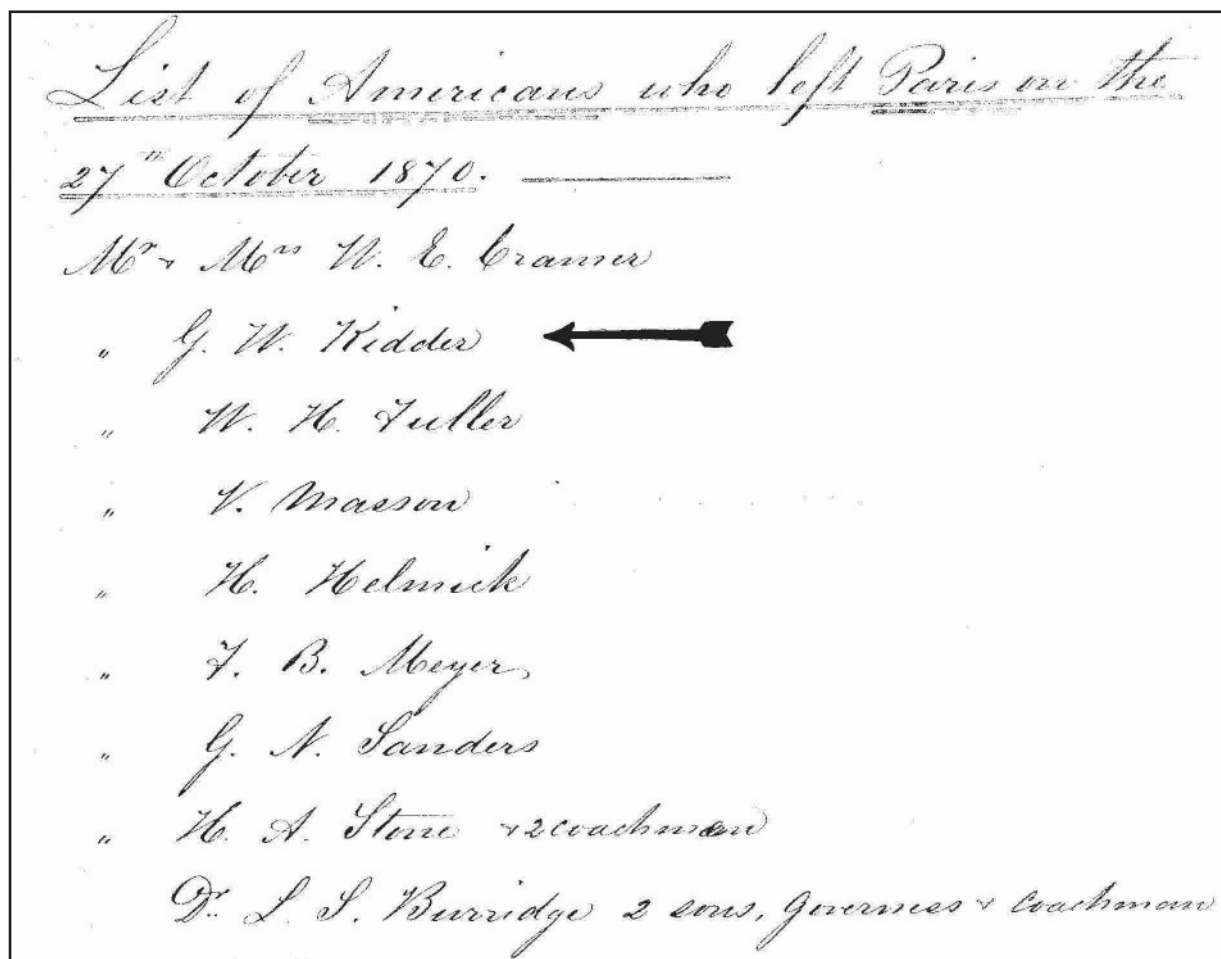 List of Americans who left Paris on the
27th October 1870.
Mr & Mrs W. E. Cramer
" G. W. Kidder
" W. H. Fuller
" V. Masson
" H. Helmick
" F. B. Meyer
" G. N. Sanders
" H. A. Stone & 2 coachmen
Dr. L. S. Burridge 2 sons, Governess & Coachman